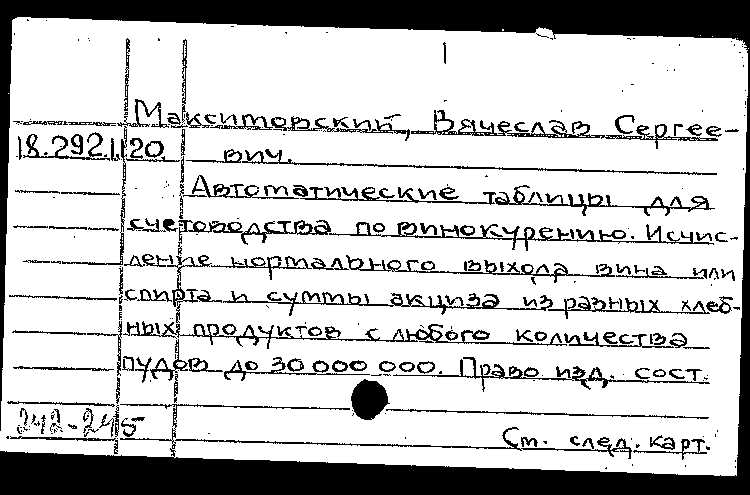 Макситовский, Вячеслав Сергее-
18.292.1.120. вич.
Автоматические таблицы для
счетоводства по винокурению. Исчис-
ление нормального выхода вина или
спирта и суммы акциза из разных хлеб-
ных продуктов с любого количества
пудов до 30 000 000. Право изд. сост.
242-245
См. след. карт.